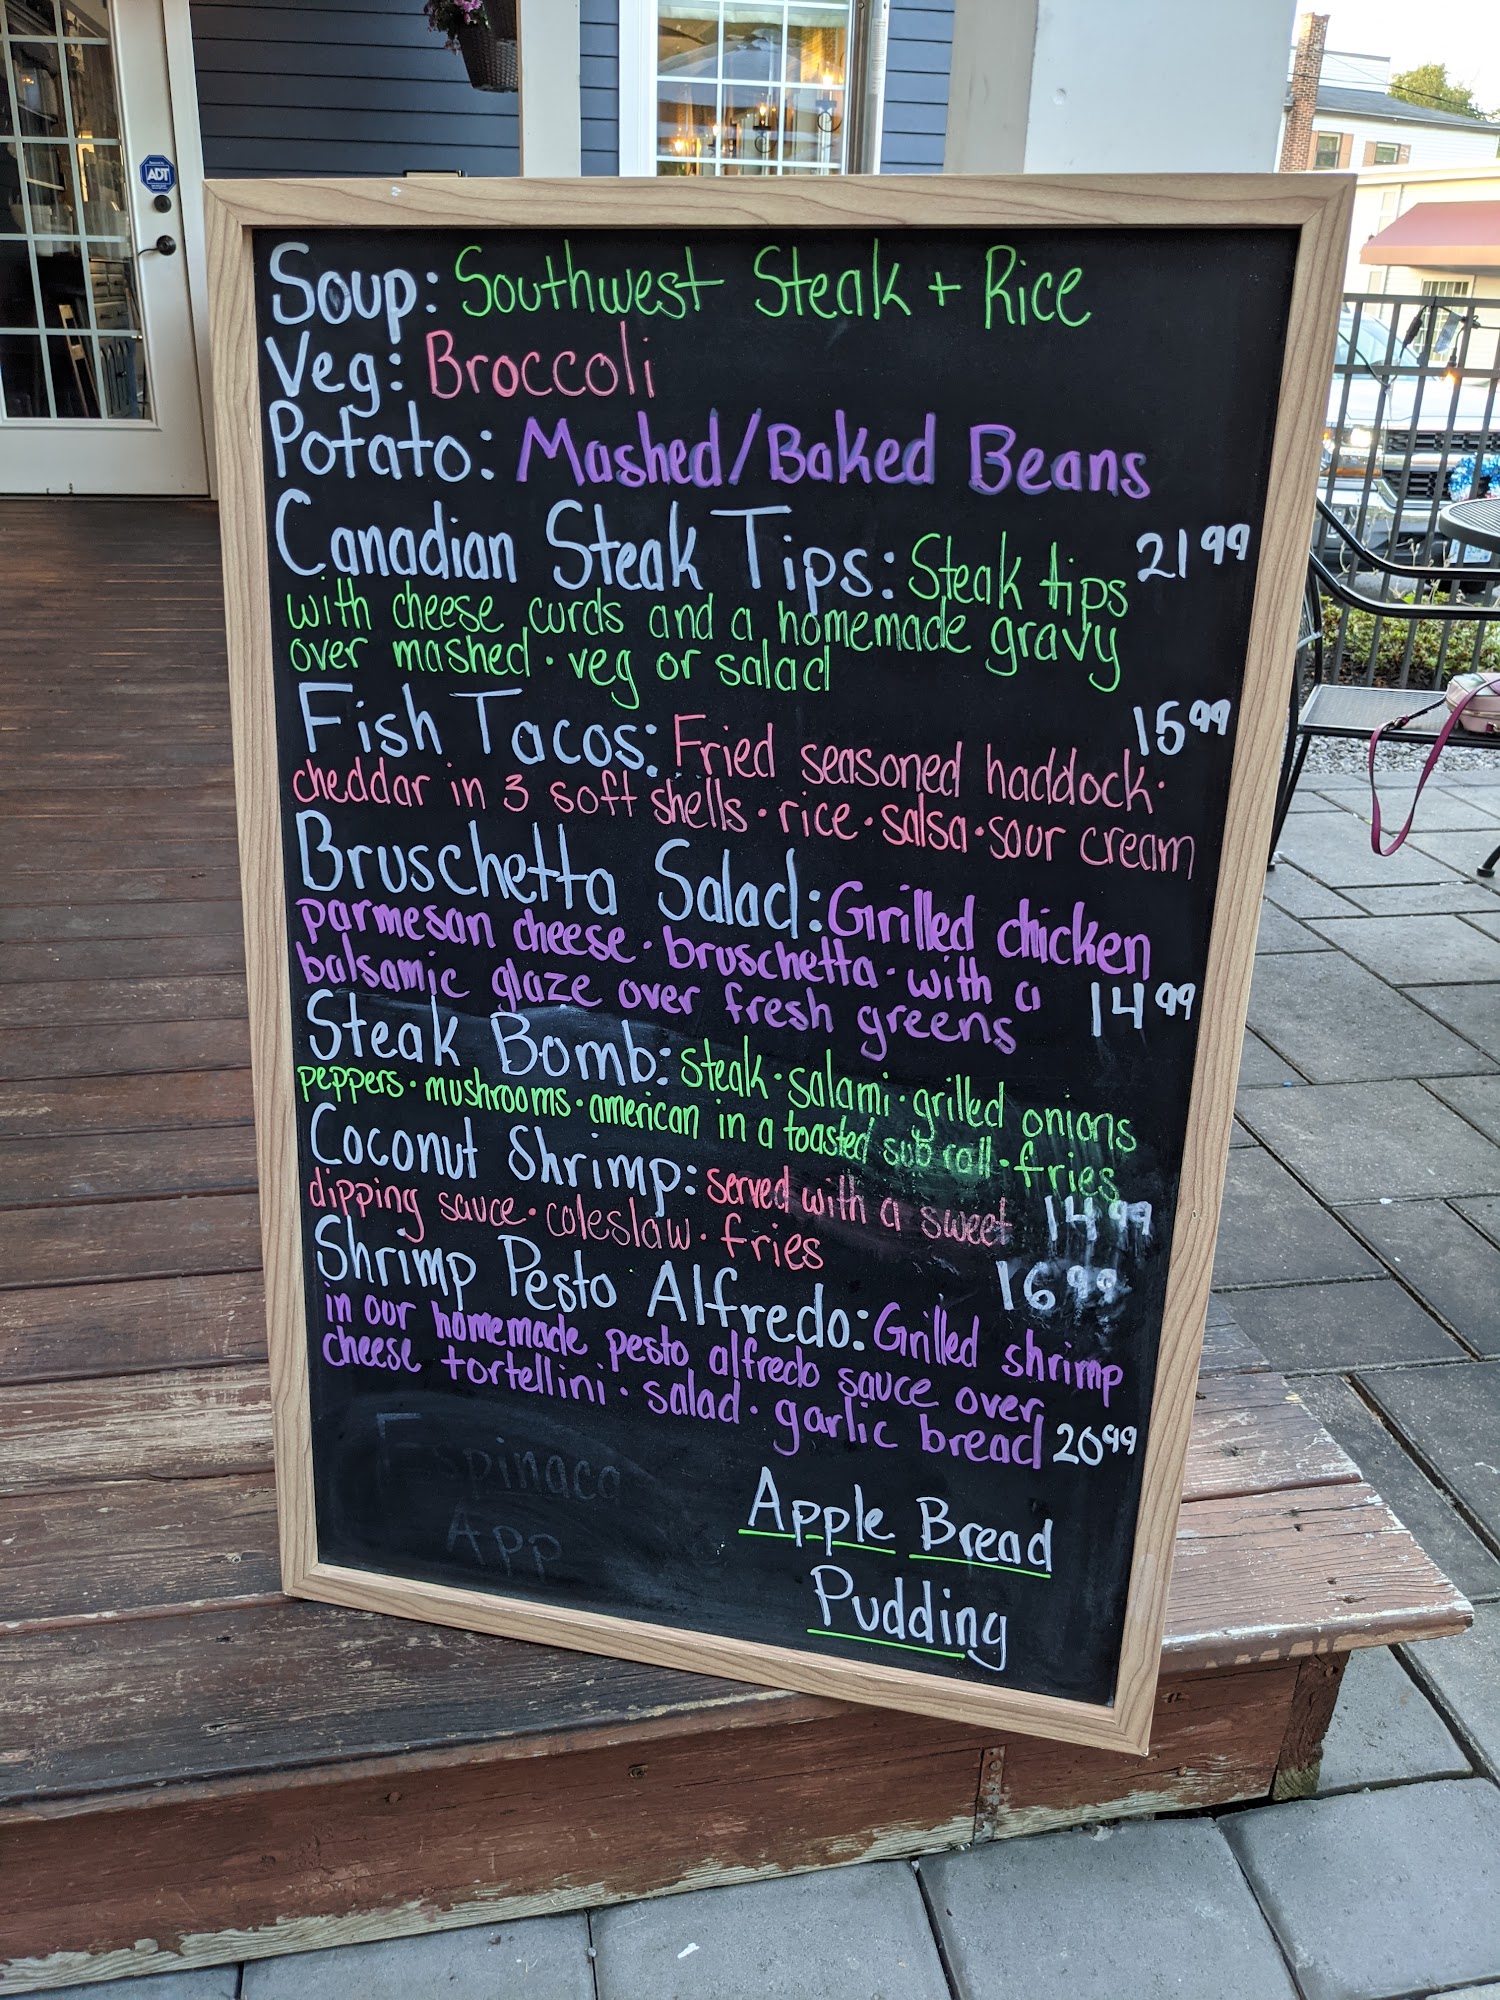 ADT
Soup: Southwest Steak + Rice
Veg: Broccoli
Potato: Mashed/Baked Beans
Canadian Steak Tips: Steak tips 21 99
with cheese curds and a homemade gravy
over mashed · veg or salad
Fish Tacos: Fried seasoned haddock · 15 99
cheddar in 3 soft shells · rice · salsa · sour cream
Bruschetta Salad: Grilled chicken
parmesan cheese · bruschetta · with a
balsamic glaze over fresh greens 14 99
Steak Bomb: Steak · salami · grilled onions
peppers · mushrooms · american in a toasted sub roll · fries
14 99
Coconut Shrimp: served with a sweet
dipping sauce · coleslaw · fries 16 99
Shrimp Pesto Alfredo: Grilled shrimp
in our homemade pesto alfredo sauce over
cheese tortellini · salad · garlic bread 20 99
Apple Bread
Pudding
App